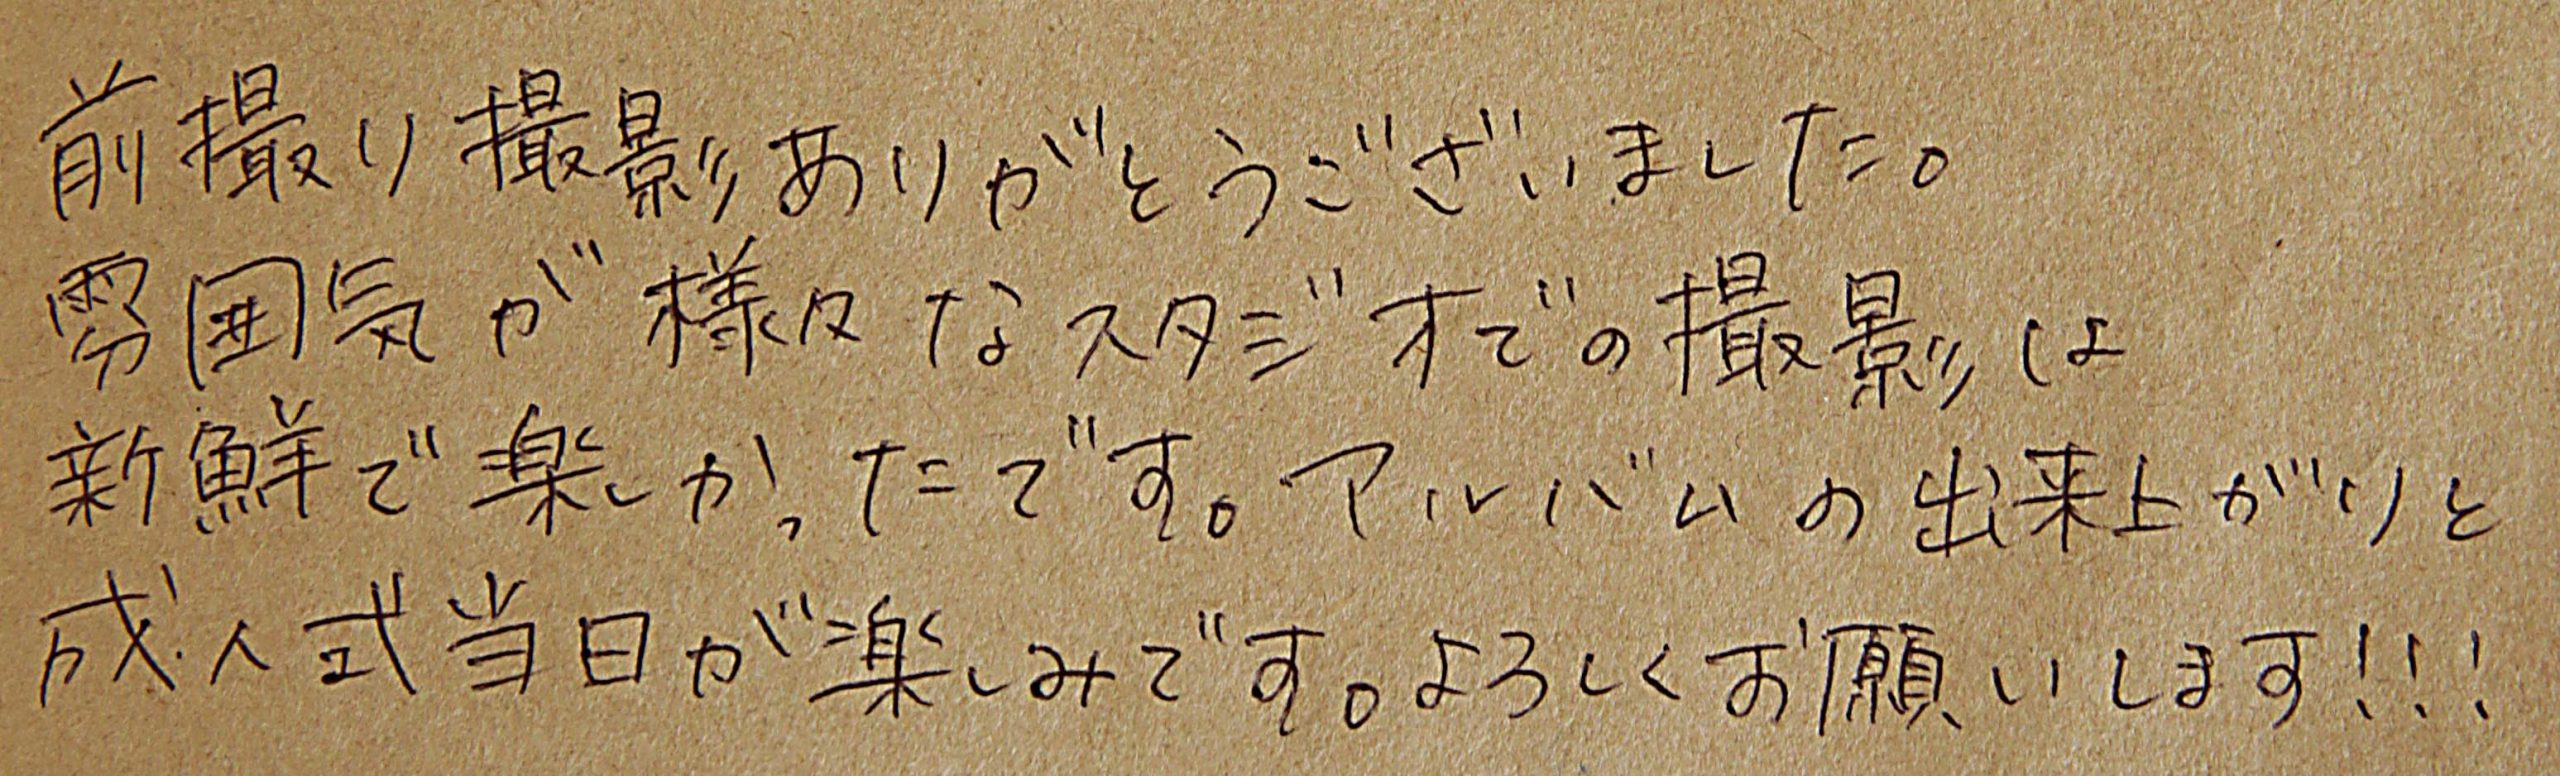 前撮り撮影ありがとうございました。
雰囲気が様々なスタジオでの撮影は
新鮮で楽しかったです。アルバムの出来上がりと
成人式当日が楽しみです。よろしくお願いします!!!